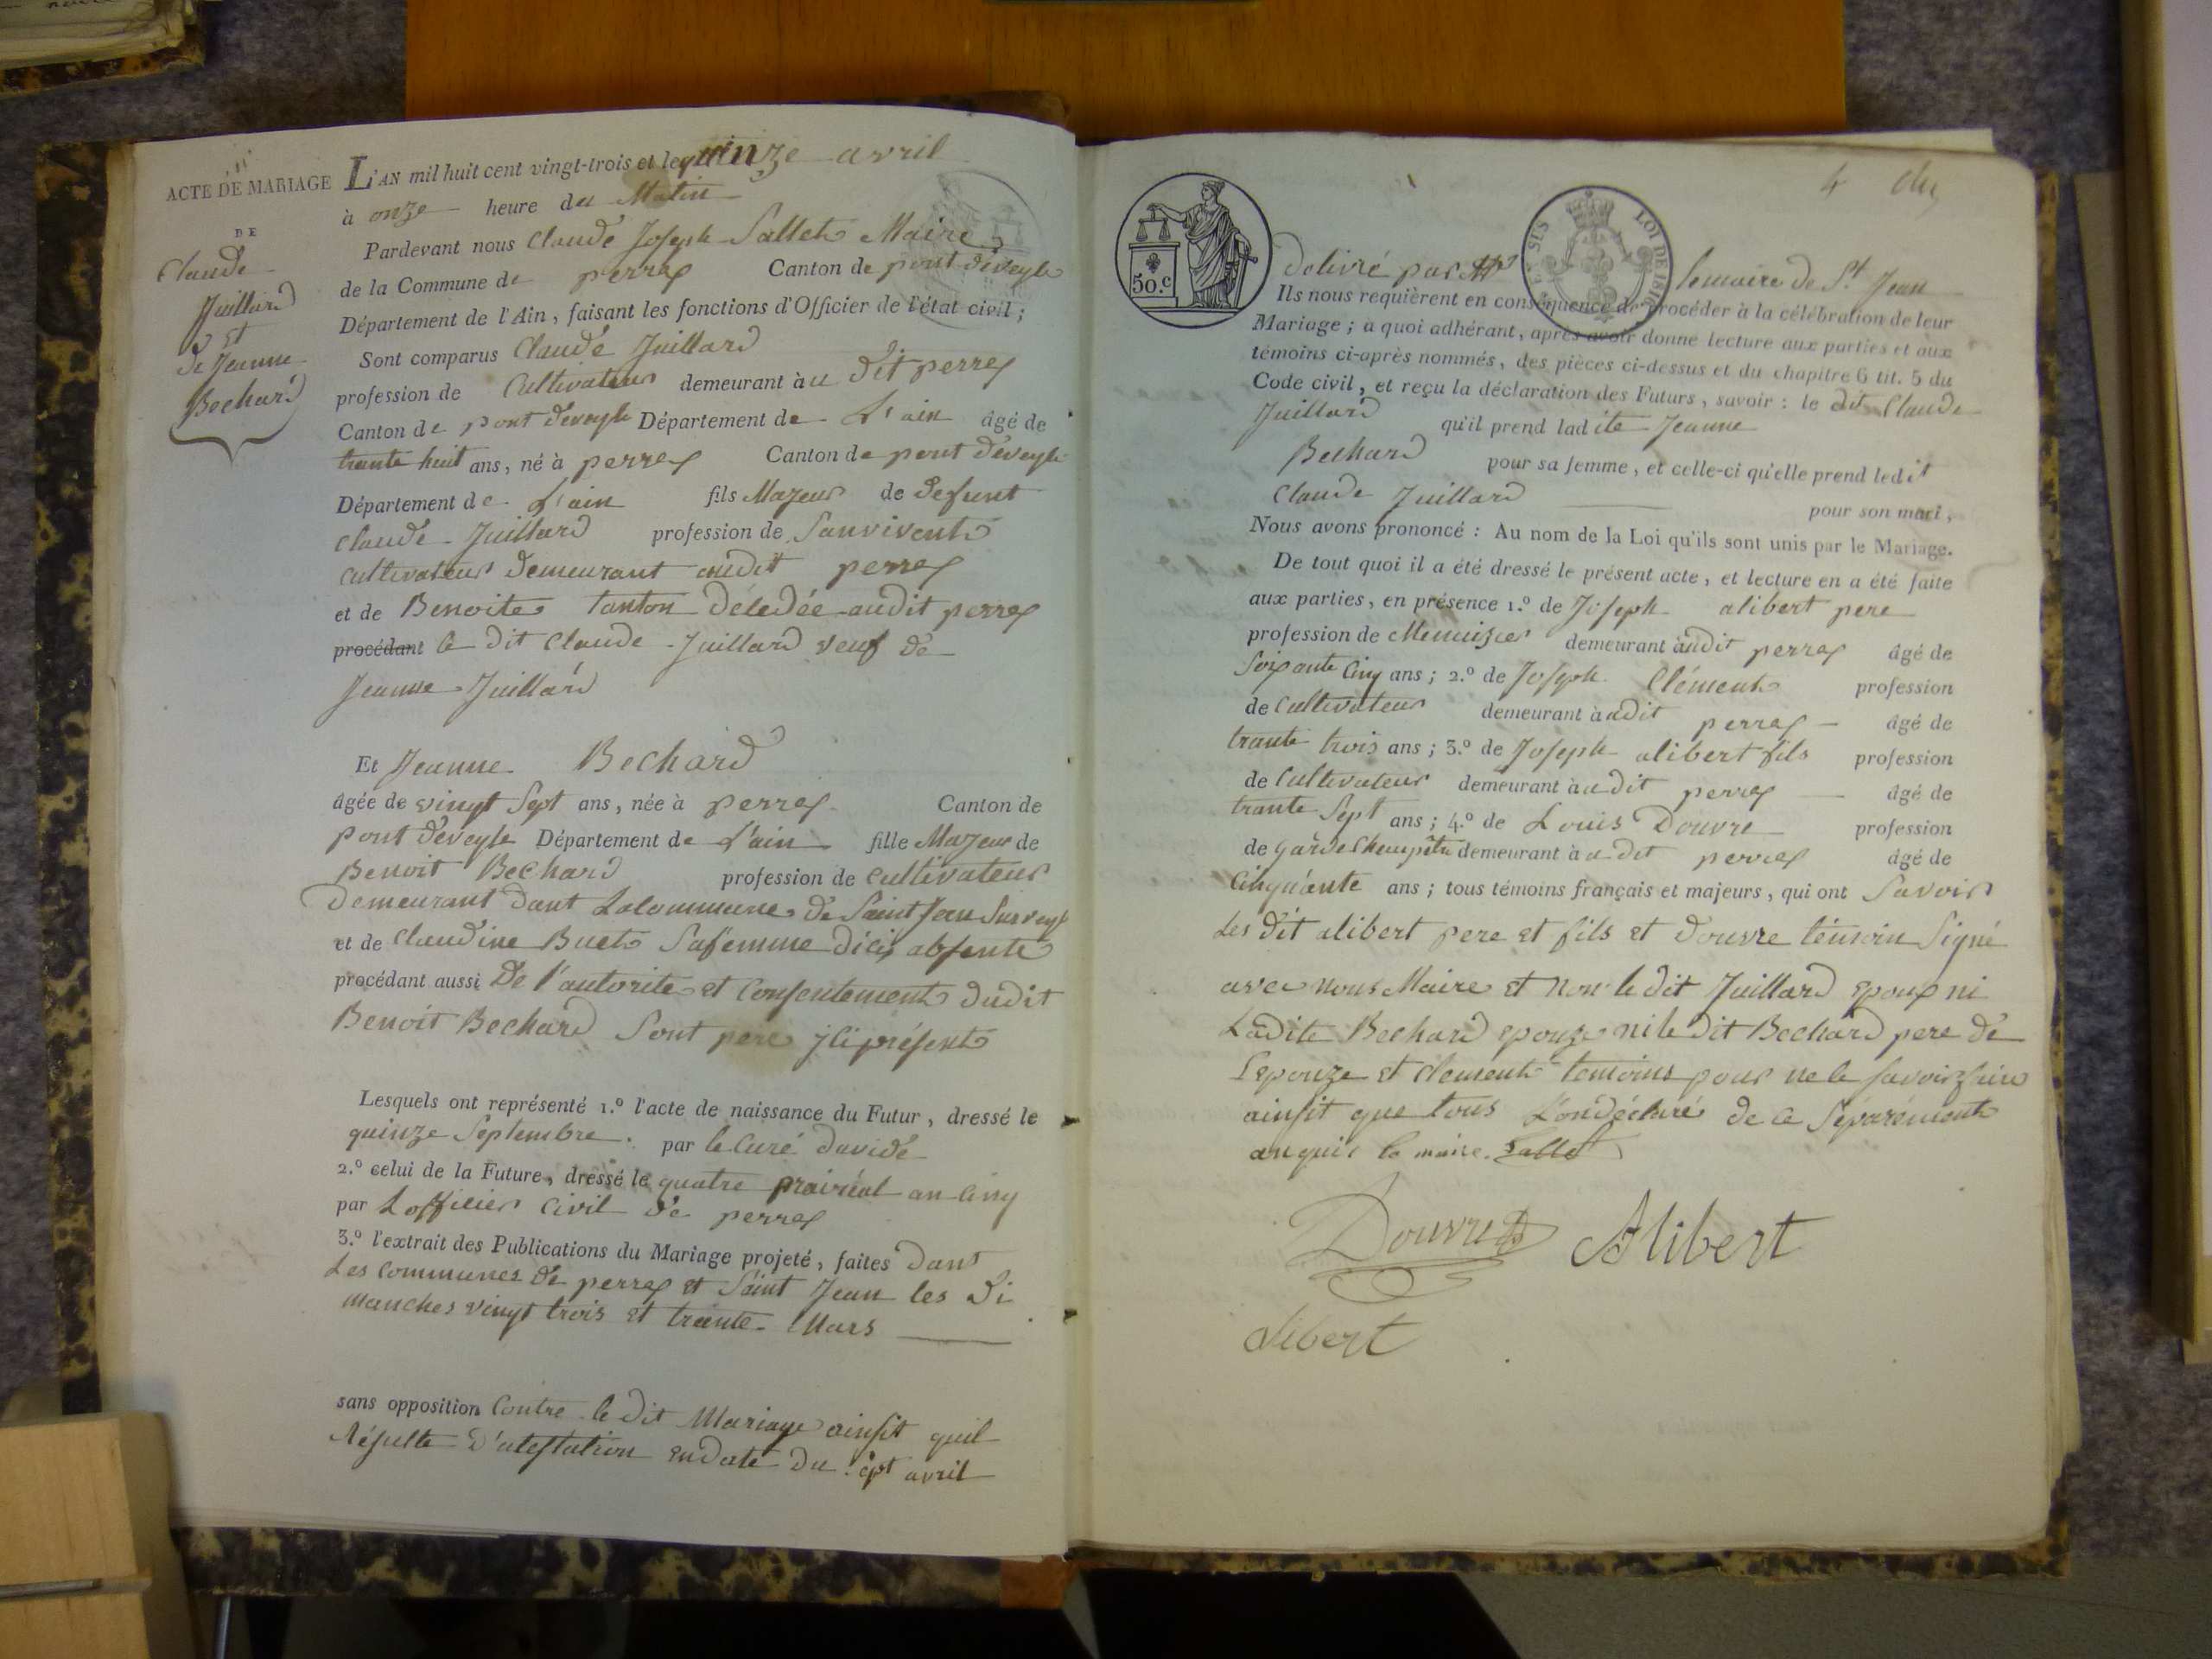 ACTE DE MARIAGE
DE
Claude
Juillard
et
de Jeanne
Bechard
L'AN mil huit cent vingt-trois et le quinze avril
à onze heure du Matin
Pardevant nous Claude Joseph Sallet Maire
de la Commune de perrex Canton de pont deveyle
Département de l'Ain, faisant les fonctions d'Officier de l'état civil;
Sont comparus Claude Juillard
profession de Cultivateur demeurant àu dit perrex
Canton de pont deveyle Département de L'ain âgé de
trante huit ans, né à perrex Canton de pont deveyle
Département de L'ain fils Majeur de defunt
claude Juillard profession de Sanvivent
cultivateur demeurant audit perrex
et de Benoite tanton décédée audit perrex
procédant le dit Claude Juillard veuf de
Jeanne Juillard
Et Jeanne Bechard
âgée de vingt Sept ans, née à perrex Canton de
pont deveyle Département de L'ain fille Majeur de
Benoit Bechard profession de cultivateur
Demeurant dant Lacommune de Saint Jean Sur veyle
et de Claudine Buet Safemme absente
procédant aussi De l'autorite et Consentement dudit
Benoit Bechard Sont pere présent
Lesquels ont représenté 1.º l'acte de naissance du Futur, dressé le
quinze Septembre par le Curé david
2.º celui de la Future, dressé le quatre prairéal an Cinq
par L'officier Civil de perrex
3.º l'extrait des Publications du Mariage projeté, faites Dant
Les Communes de perrex et Saint Jean les di
manches vingt trois et trante Mars
sans opposition Contre le dit Mariage ainsit quil
Résulte D'atestation en date du sept avril
50.c
LOI DE 1816
délivré par Mr lemaire de St. Jean
Ils nous requièrent en conséquence de procéder à la célébration de leur
Mariage; à quoi adhérant, après avoir donné lecture aux parties et aux
témoins ci-après nommés, des pièces ci-dessus et du chapitre 6 tit. 5 du
Code civil, et reçu la déclaration des Futurs, savoir : le dit Claude
Juillard qu'il prend ladite Jeanne
Bechard pour sa femme, et celle-ci qu'elle prend ledit
Claude Juillard pour son mari,
Nous avons prononcé : Au nom de la Loi qu'ils sont unis par le Mariage.
De tout quoi il a été dressé le présent acte, et lecture en a été faite
aux parties, en présence 1.º de Joseph alibert pere
profession de Menuizier demeurant àudit perrex âgé de
Soixante Cinq ans; 2.º de Joseph Clément profession
de Cultivateur demeurant àudit perrex âgé de
trante trois ans; 3.º de Joseph alibert fils profession
de Cultivateur demeurant àudit perrex âgé de
trante Sept ans; 4.º de Louis Douvre profession
de garde Champêtre demeurant àudit perrex âgé de
Cinquante ans; tous témoins français et majeurs, qui ont Savoir
Les dit alibert pere et fils et douvre témoin Signé
avec nous Maire et non le dit Juillard epoux ni
Ladite Bechard epouze ni le dit Bechard pere de
L'epouze et clement temoins pour ne le savoir faire
ainsit que tous L'ondéclaré de ce Séparément
anquis le maire. Sallet
Douvre Alibert
alibert